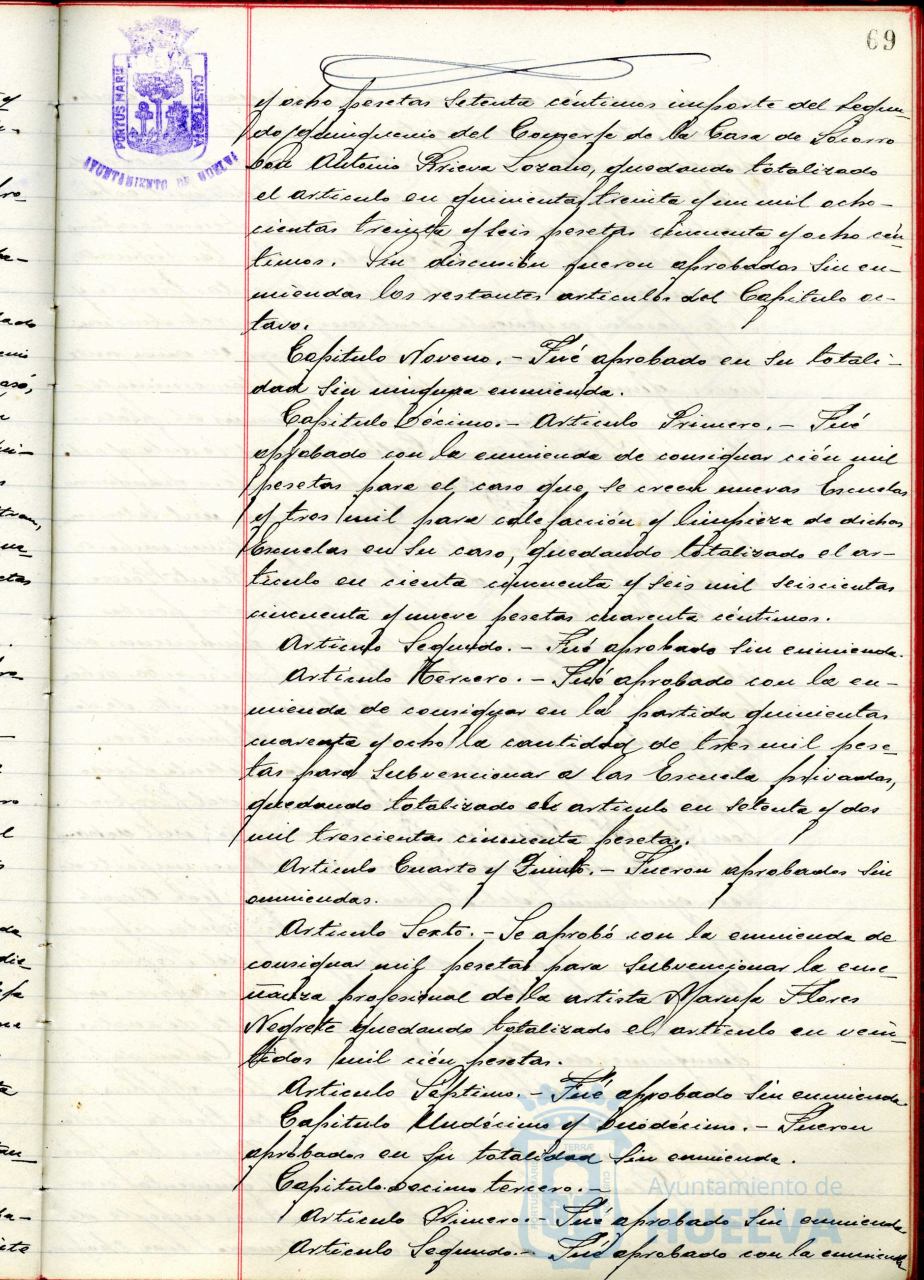 69
PORTUS MARIS
CUSTODIA
AYUNTAMIENTO DE HUELVA
y ocho pesetas setenta céntimos importe del segun-
do quinquenio del Conserje de la Casa de Socorro
Don Antonio Lozano, quedando totalizado
el articulo en quinientas treinta y un mil ocho-
cientas treinta y seis pesetas cincuenta y ocho cén-
timos. Sin discusión fueron aprobados sin en-
miendas los restantes articulos del Capitulo oc-
tavo.
Capitulo Noveno.- Fué aprobado en su totali-
dad sin ninguna enmienda.
Capitulo Décimo.- Articulo Primero.- Fué
aprobado con la enmienda de consignar cién mil
pesetas para el caso que se creen nuevas Escuelas
y tres mil para calefacción y limpieza de dichas
Escuelas en su caso, quedando totalizado el ar-
ticulo en cienta cincuenta y seis mil seiscientas
cincuenta y nueve pesetas cuarenta céntimos.
Articulo Segundo.- Fué aprobado sin enmienda.
Articulo Tercero.- Fué aprobado con la en-
mienda de consignar en la partida quinientas
cuarenta y ocho la cantidad de tres mil pese-
tas para subvencionar a las Escuela privadas,
quedando totalizado el articulo en setenta y dos
mil trescientas cincuenta pesetas.
Articulo Cuarto y Quinto.- Fueron aprobados sin
enmiendas.
Articulo Sexto.- Se aprobó con la enmienda de
consignar mil pesetas para subvencionar la ense-
ñanza profesional de la artista Maruja Flores
Negrete quedando totalizado el articulo en vein-
tidos mil cién pesetas.
Articulo Séptimo.- Fué aprobado sin enmienda
Capitulo Undécimo y Duodécimo.- Fueron
aprobados en su totalidad sin enmienda.
Capitulo Decimo tercero.-
Articulo Primero.- Fué aprobado sin enmienda
Articulo Segundo.- Fué aprobado con la enmienda
Ayuntamiento de
HUELVA